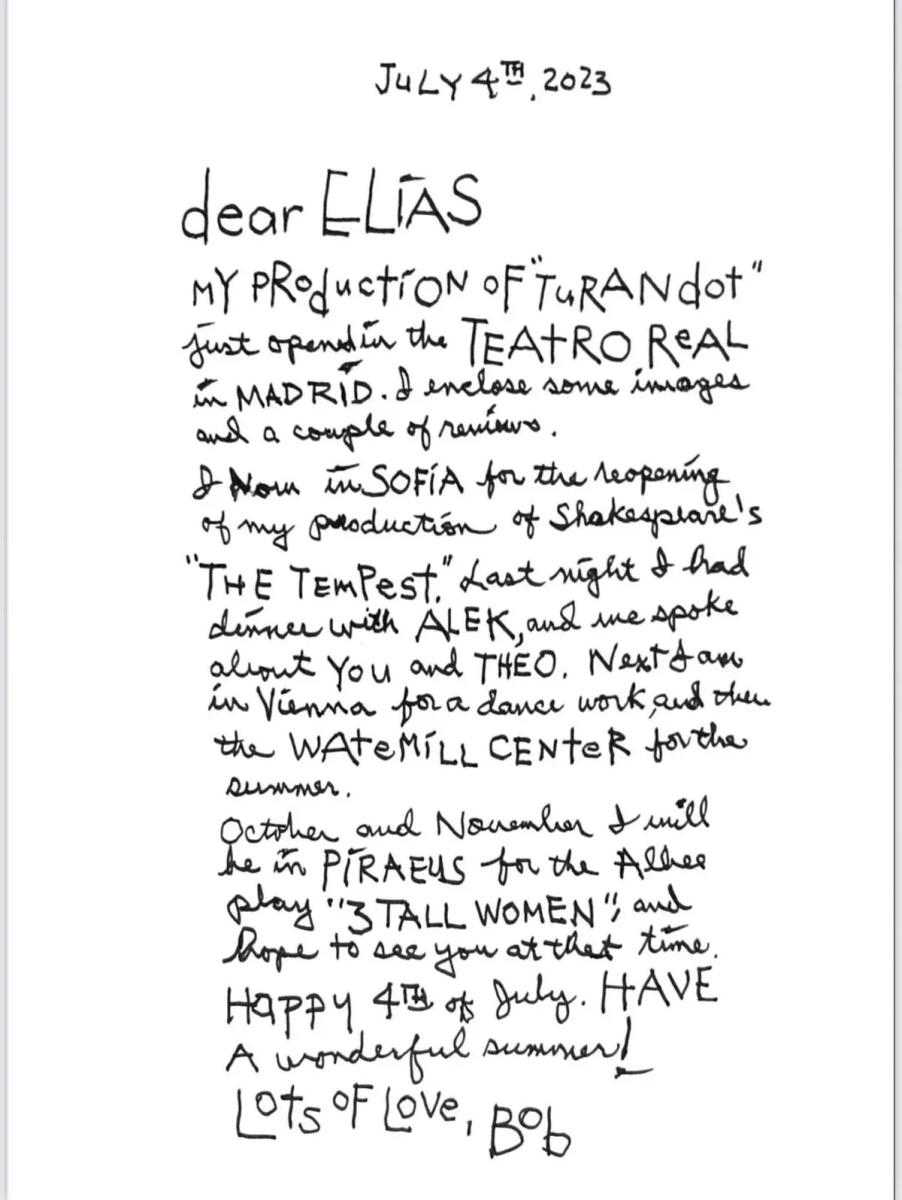 JULY 4TH, 2023
dear ELIAS
MY PRoductiON OF "TuRANdot"
just opend in the TEAtRO ReAL
in MADRID. I enclose some images
and a couple of reviews.
I Now in SOFIA for the reopening
of my production of Shakespeare's
"THE TEMPest." Last night I had
dinner with ALEK, and we spoke
about YOU and THEO. Next I am
in Vienna for a dance work, and then
the WAteMiLL CENteR for the
summer.
October and November I will
be in PIRAEUS for the Albee
play "3 TALL WOMEN", and
hope to see you at that time.
HAPPY 4TH of July. HAVE
A wonderful summer!
Lots OF Love, Bob